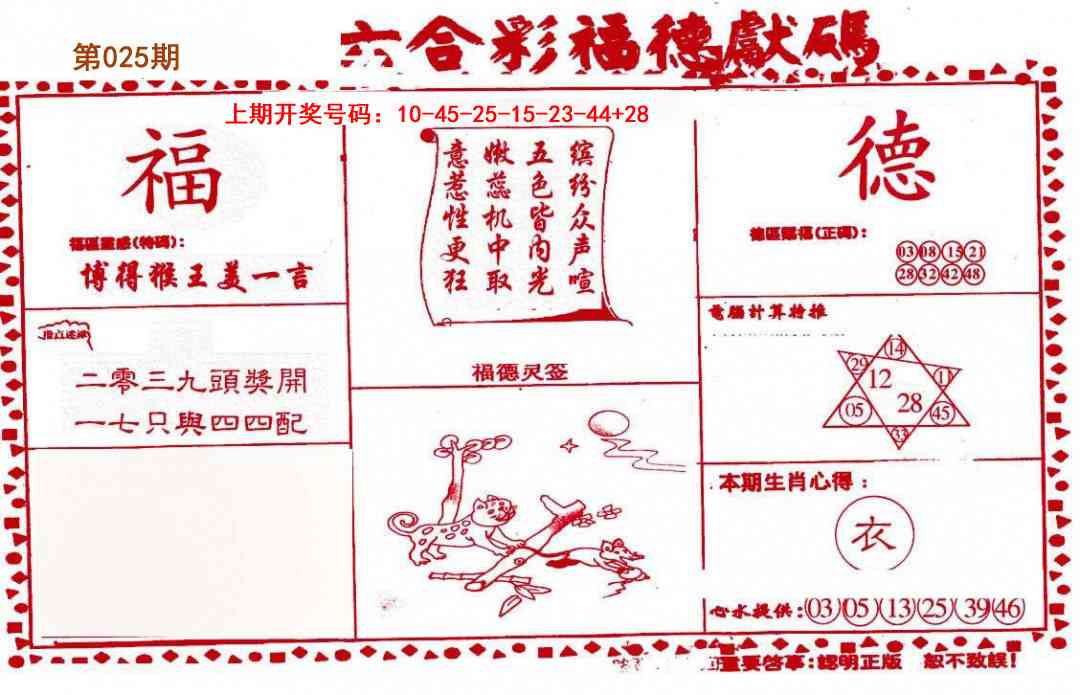 第025期
六合彩福德獻碼
上期开奖号码：10-45-25-15-23-44+28
福
福區靈感(特碼)：
博得猴王美一言
二零三九頭獎開
一七只與四四配
缤纷众声喧
五色皆内光
嫩蕊机中取
意惹性更狂
福德灵签
德
德區賜福(正碼)：
03 08 15 21
28 32 42 48
電腦計算特推
14
29
12
1
05
28
45
33
本期生肖心得：
衣
心水提供:(03)(05)(13)(25)(39)(46)
重要啓事:認明正版 恕不致誤!